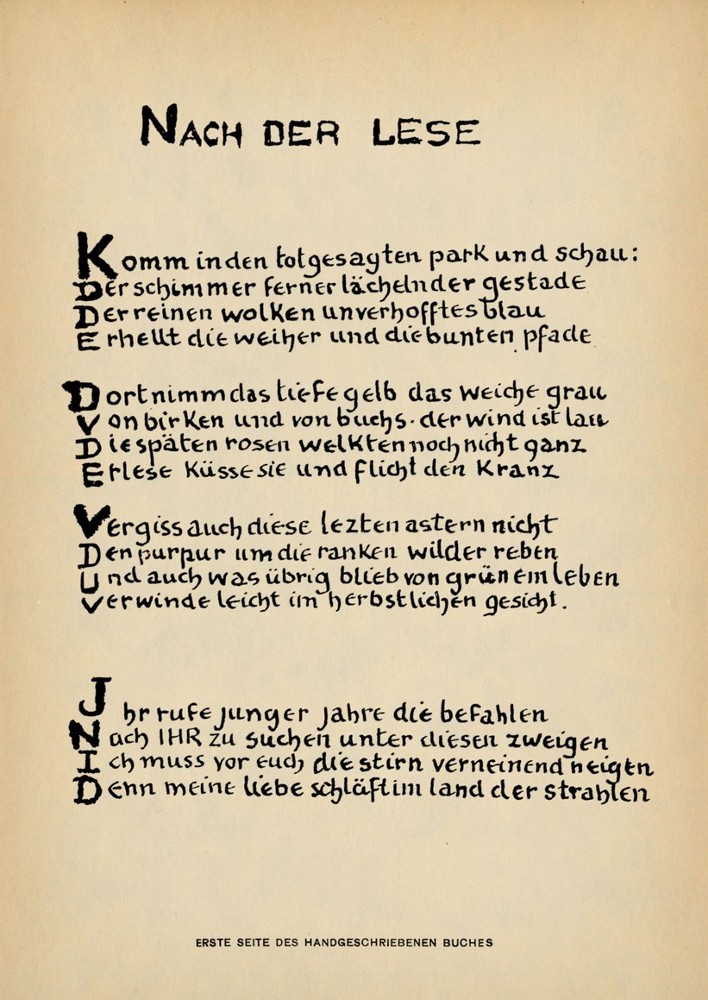 NACH DER LESE
Komm in den totgesagten park und schau:
Der schimmer ferner lächelnder gestade
Der reinen wolken unverhofftes blau
Erhellt die weiher und die bunten pfade
Dort nimm das tiefe gelb das weiche grau
Von birken und von buchs· der wind ist lau
Die späten rosen welkten noch nicht ganz
Erlese küsse sie und flicht den kranz
Vergiss auch diese lezten astern nicht
Den purpur um die ranken wilder reben
Und auch was übrig blieb von grünem leben
Verwinde leicht im herbstlichen gesicht.
Ihr rufe junger jahre die befahlen
Nach IHR zu suchen unter diesen zweigen
Ich muss vor euch die stirn verneinend neigen
Denn meine liebe schläft im land der strahlen
ERSTE SEITE DES HANDGESCHRIEBENEN BUCHES